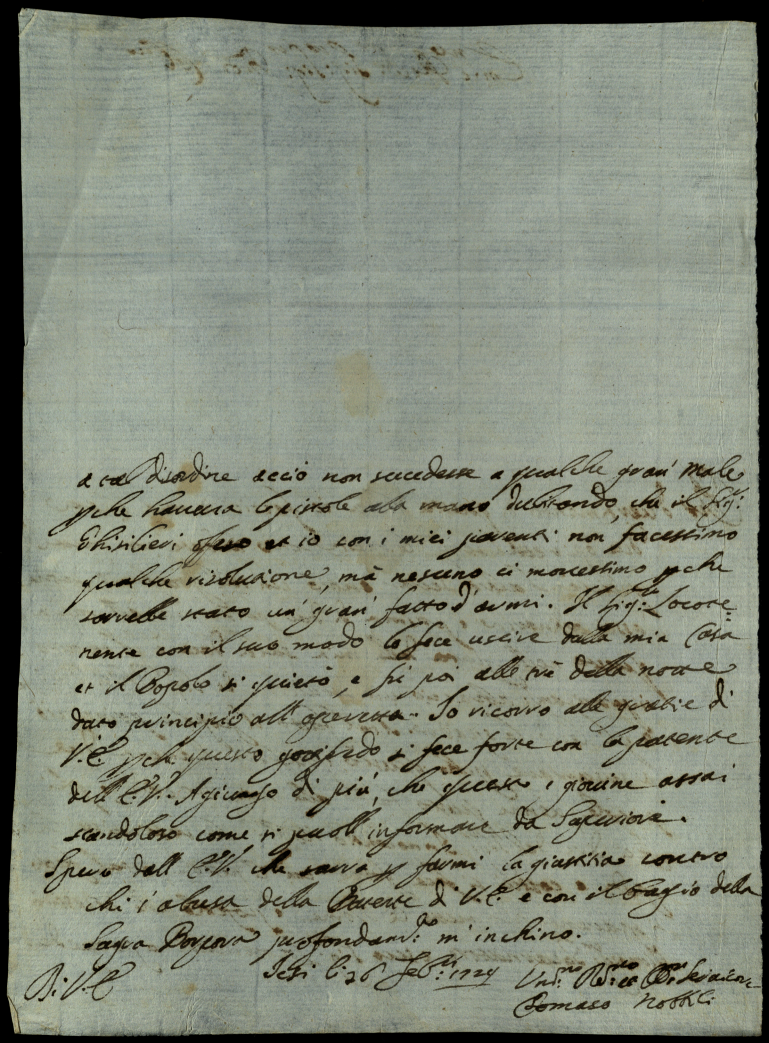 a tal disordine acciò non succedesse a qualche gran' male
p che haveva le pistole alla mano dubitando, che il Sig:
Ghisilieri ofeso et io con i miei parenti non facessimo
qualche risolutione, mà nesuno ci movessimo p che
sarrebbe stato un' gran' fatto d'armi. Il Sig:re Locote=
nente con il suo modo lo fece uscire dalla mia Casa
et il Popolo si quietò, e fù poi alle trè della notte
dato principio all' operetta. Io ricorro alle gratie di
V.E. p che questo si fece forte con la patente
dell' E.V. Agiungo di più, che questo è giovine assai
scandoloso come si puoll' informare da Superiori.
Spero dall' E.V. che sarrà p farmi la giustitia contro
chi s'abusa della Patente di V.E. e con il bagio della
Sagra Porpora profondam:te m' inchino.
Di V.E.
Iesi li 26 Feb:ro 1724
Um:mo
Tomaso Nobbili